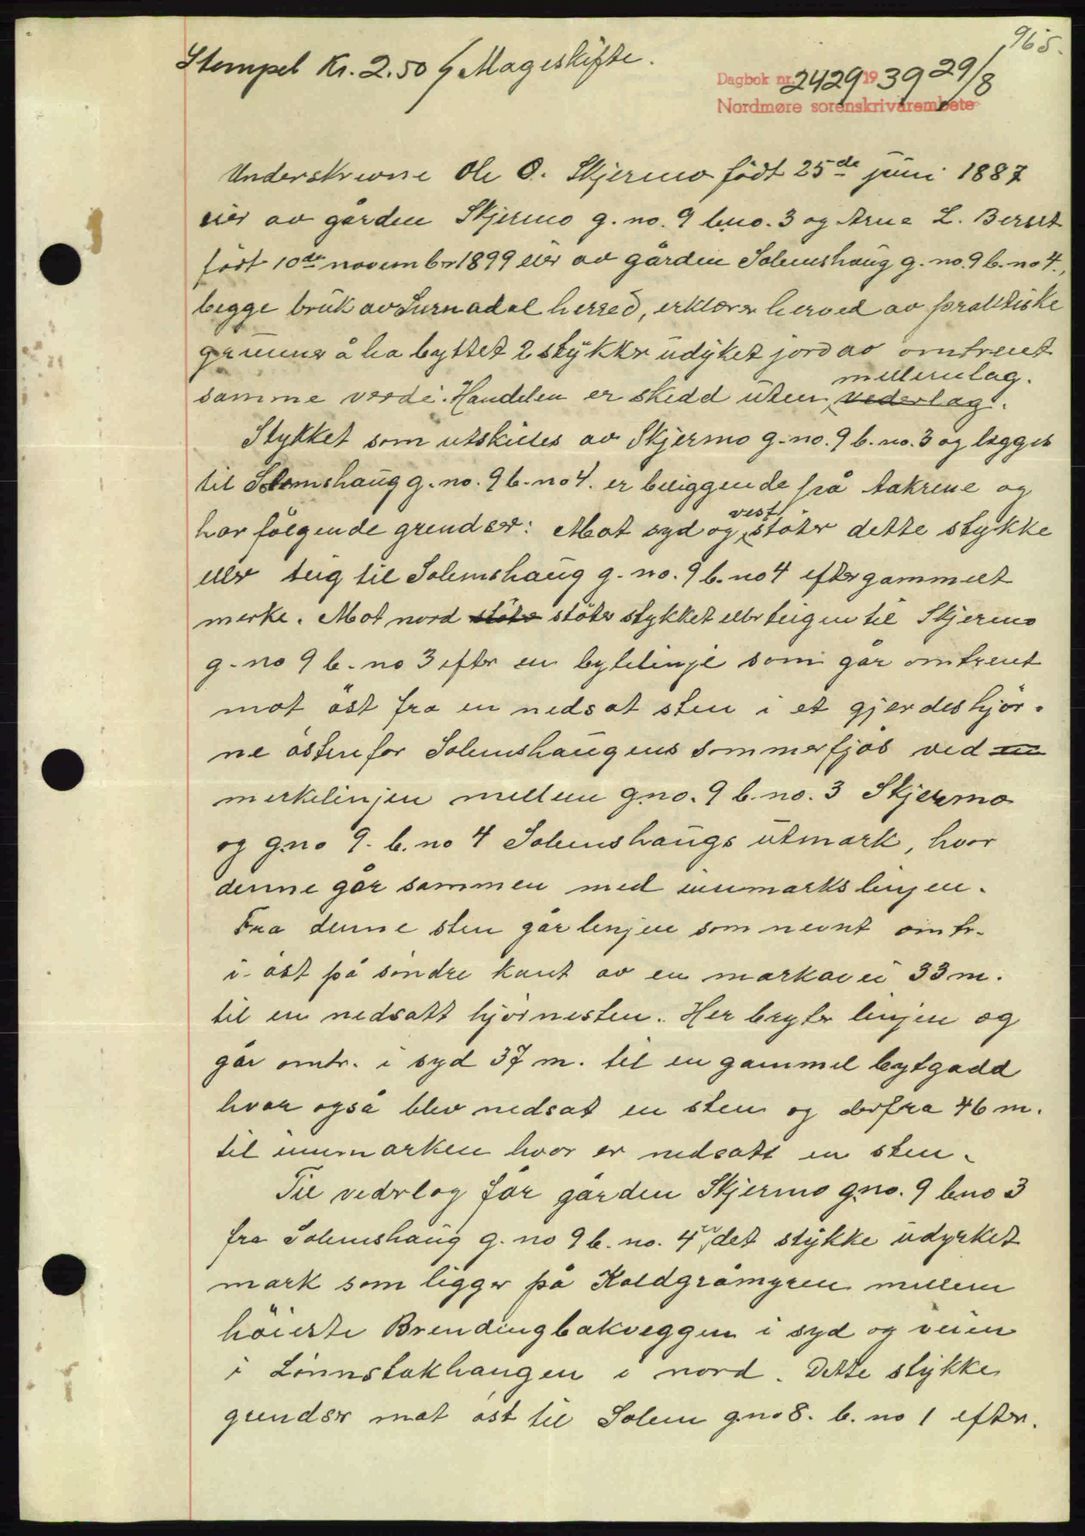 965.
Stempel Kr. 2.50 / Mageskifte.
Dagbok nr. 2429 1939 29/8
Nordmøre sorenskriverembete
Underskrevne Ole O. Skjermo født 25de juni 1887
eier av gården Skjermo g. no. 9 b.no. 3 og Arne L. Berset
født 10de november 1899 eier av gården Solemshaug g. no. 9 b. no 4.,
begge bruk av Surnadal herred, erklærer herved av praktiske
grunner å ha byttet 2 stykker udyket jord av omtrent
mellemlag.
samme verdi. Handelen er skedd uten vederlag.
Stykket som utskilles av Skjermo g. no. 9 b. no. 3 og legges
til Solemshaug g. no. 9 b. no 4. er beliggende på Aakrene og
vest
har følgende grendser: Mot syd og støter dette stykke
eller teig til Solemshaug g. no. 9 b. no 4 efter gammelt
merke. Mot nord støter støter stykket eller teigen til Skjermo
g. no 9 b. no 3 efter en bytelinje som går omtrent
mot øst fra en nedsat sten i et gjerdeshjør-
ne østenfor Solemshaugens sommerfjøs ved en
merkelinjen mellem gno. 9 b. no. 3 Skjermo
og gno 9. b. no 4 Solemshaugs utmark, hvor
denne går sammen med innmarkslinjen.
Fra denne sten går linjen som nevnt omtr.
i øst på søndre kant av en markavei 33 m.
til en nedsatt hjørnesten. Her bryter linjen og
går omtr. i syd 37 m. til en gammel bytgadd
hvor også blev nedsat en sten og derfra 46 m.
til innmarken hvor er nedsatt en sten.
Til vederlag får gården Skjermo gno. 9 b.no 3
fra Solemshaug g. no 9 b. no. 4 det stykke udyrket
mark som ligger på Kaldgråmyren mellem
høieste Brendingbakveggen i syd og veien
i Lønnstakhaugen i nord. Dette stykke
grendser mot øst til Solem gno 8. b. no 1 efter.